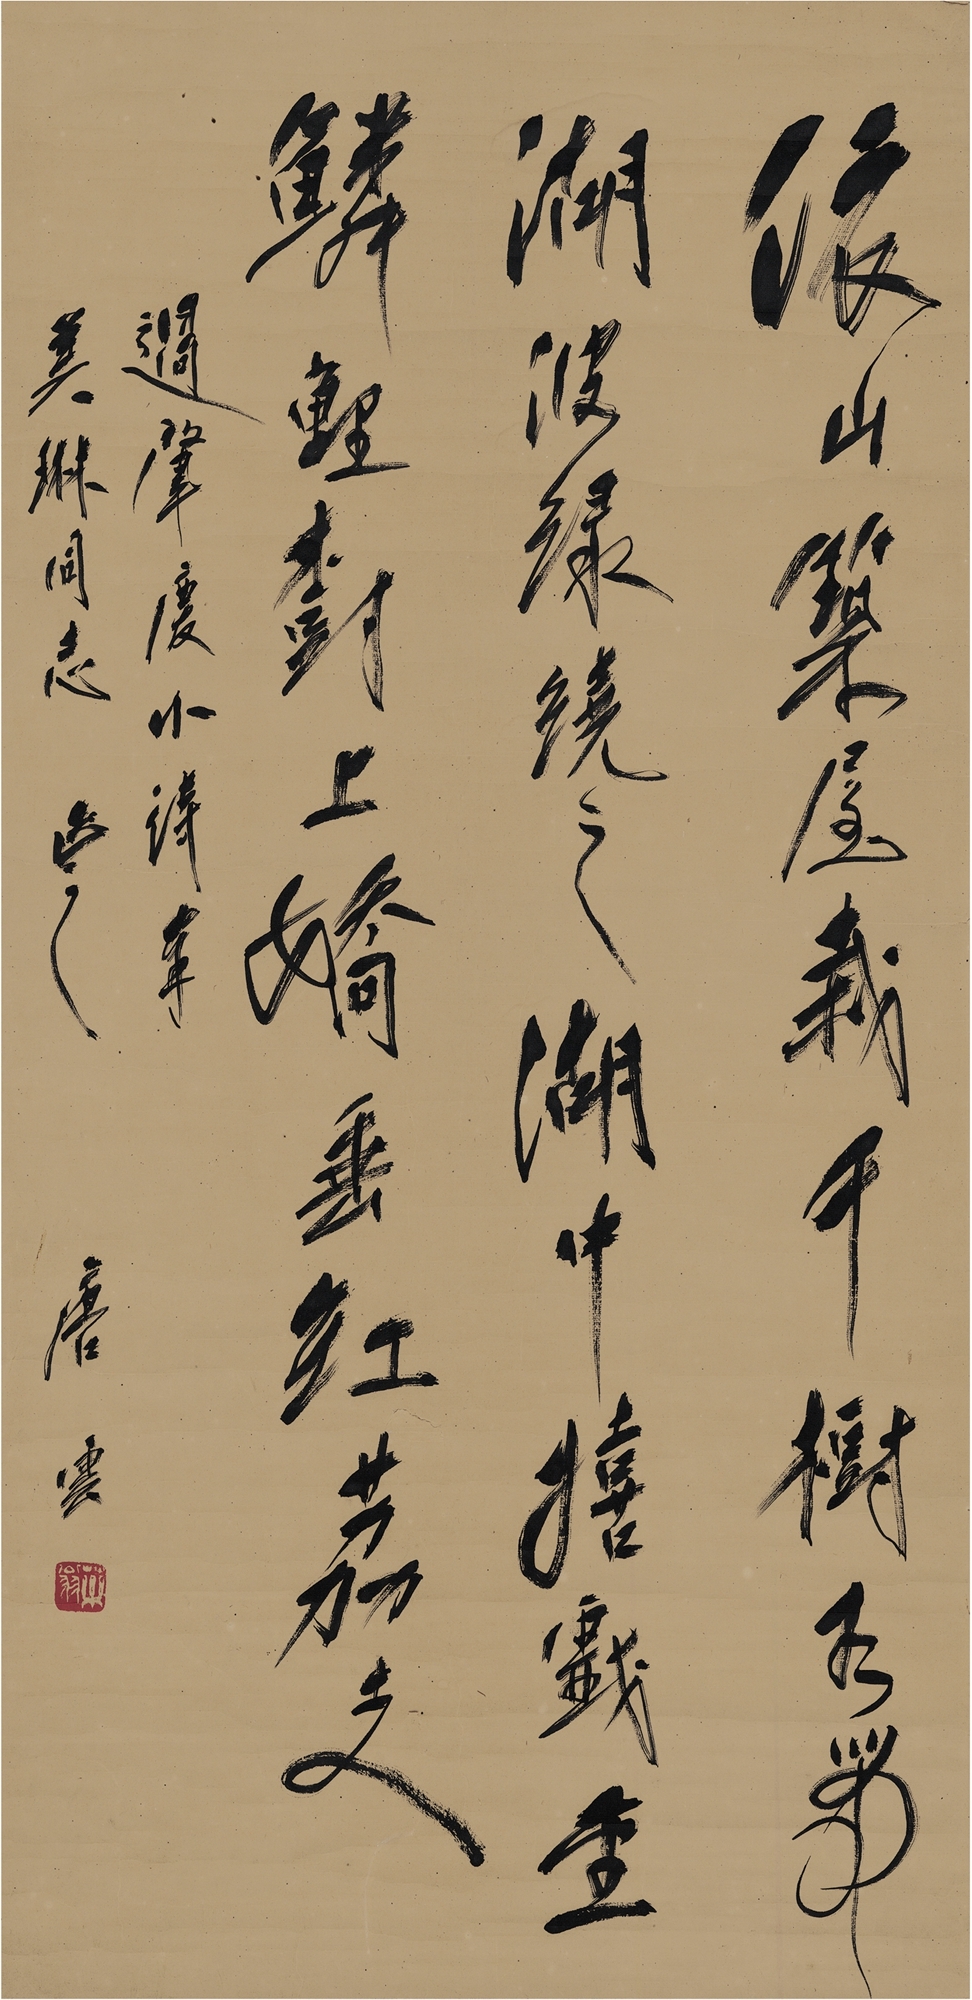 依山築屋栽千樹有帶
湖波綠繞之湖中嬉戲金
鱗鯉樹上嬌垂紅荔支
過肇慶小詩奉
美琳同志正之
唐雲
藥翁